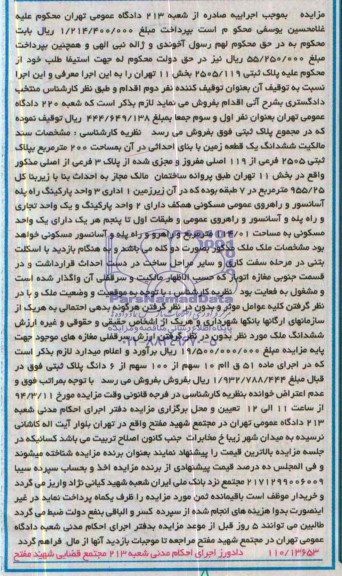 مزایده بموجب اجراییه صادره از شعبه ۲۱۳ دادگاه عمومی تهران محکوم علیه
غلامحسین یوسفی محکوم است بپرداخت مبلغ ۱/۲۱۴/۴۰۰/۰۰۰ ریال بابت
محکوم به در حق محکوم لهم رسول آخوندی و ژاله بنی الهی و همچنین بپرداخت
۵۵/۲۵۰/۰۰۰ ریال مبلغ نیز در حق دولت محکوم له جهت استیفا طلب خود از
محکوم علیه پلاک ثبتی ۲۵۰۵/۱۱۹ بخش ۱۱ تهران را به این اجرا معرفی و این اجرا
نسبت به توقیف آن بعنوان توقیف کننده نفر دوم اقدام و طبق نظر کارشناس منتخب
دادگستری بشرح آتی اقدام بفروش می نماید لازم بذکر است که شعبه ۲۲۰ دادگاه
عمومی تهران بعنوان نفر اول و سوم جمعا بمبلغ ۴۴۴/۶۴۹/۱۳۸ ریال توقیف نموده
که در مجموع پلاک ثبتی فوق بفروش می رسد نظریه کارشناسی : مشخصات سند
مالکیت ششدانگ یک قطعه زمین با بنای احداثی در آن بمساحت ۲۰۰ مترمربع بپلاک
ثبتی ۲۵۰۵ فرعی از ۱۱۹ اصلی مفروز و مجزی شده از پلاک ۳ فرعی از اصلی مذکور
واقع در بخش ۱۱ تهران طبق پروانه ساختمان مالک مجاز به احداث بنا با زیربنا کل
۹۵۵/۲۵ مترمربع در ۷ طبقه بوده که در آن زیرزمین ۱ اداری ۳ واحد پارکینگ راه پله
آسانسور و راهروی عمومی مسکونی همکف دارای ۲ واحد پارکینگ و یک واحد تجاری
و راه پله و آسانسور و راهروی عمومی و طبقات اول تا پنجم هر یک دارای یک واحد
مسکونی به مساحت مترمربع و راهرو و راه پله و آسانسور مسکونی خواهد
بود مشخصات ملک ملک مذکور بصورت دو کله می باشد و به هنگام بازدید با اسکلت
بتنی در مرحله سفت کاری و سایر مراحل ساخت در دست احداث قرارداشت و در
قسمت جنوبی مغازه اتویی که حسب الاظهار مالکیت و سرقفلی آن واگذار شده است
و مشغول به فعالیت بود نظریه کارشناس : با توجه به موقعیت و وضعیت ملک و با در
نظر گرفتن کلیه عوامل موثر و بدون در نظر گرفتن هرگونه بدهی احتمالی به هریک از
سازمانهای ارگانها بانکها شهرداری و هریک از اشخاص حقیقی و حقوقی و غیره ارزش
ششدانگ ملک مورد نظر بدون در نظر گرفتن ارزش سرقفلی مغازه های موجود جهت
پایه مزایده مبلغ ۱۹/۵۰۰/۰۰۰/۰۰۰ ریال برآورد و اعلام میدارد لازم بذکر است
که در اجرای ماده ۵۱ ق اام ۱۰ سهم از ۱۰۰ سهم از ۶ دانگ پلاک ثبتی فوق در
قبال مبلغ ۱/۹۳۲/۷۸۸/۴۴۴ ریال بفروش می رسد با توجه بمراتب فوق و
عدم اعتراض خوانده بنظریه کارشناسی در فرجه قانونی وقت مزایده مورخ ۹۴/۳/۱۱
از ساعت ۱۱ الی ۱۲ تعیین و محل برگزاری مزایده دفتر اجرای احکام مدنی شعبه
۲۱۳ دادگاه عمومی تهران در مجتمع شهید مفتح واقع در تهران بلوار آیت اله کاشانی
نرسیده به میدان شهر زیبا خ مخابرات جنب کانون اصلاح تربیت می باشد کسانیکه در
جلسه مزایده بالاترین قیمت را پیشنهاد نمایند بعنوان برنده مزایده شناخته میشوند
و فی المجلس ده درصد قیمت پیشنهادی از برنده مزایده اخذ و بحساب سپرده سیبا
۲۱۷۱۲۹۹۰۰۶۰۰۹ مجتمع نزد بانک ملی ایران شعبه شهید کیانی نژاد واریز می گردد
و خریدار موظف است باقیمانده ثمن مورد مزایده را ظرف یکماه پرداخت نماید در غیر
اینصورت بدوا هزینه های انجام شده از سپرده کسر و الباقی بنفع دولت ضبط می گردد
طالبین می توانند ۵ روز قبل از موعد مزایده بدفتر اجرای احکام مدنی شعبه دادگاه
عمومی تهران در مجتمع شهید مفتح مراجعه تا موجبات بازدید آنها از مال فراهم گردد
۱۱۰/۱۳۶۵۳ دادورز اجرای احکام مدنی شعبه ۲۱۳ مجتمع قضایی شهید مفتح